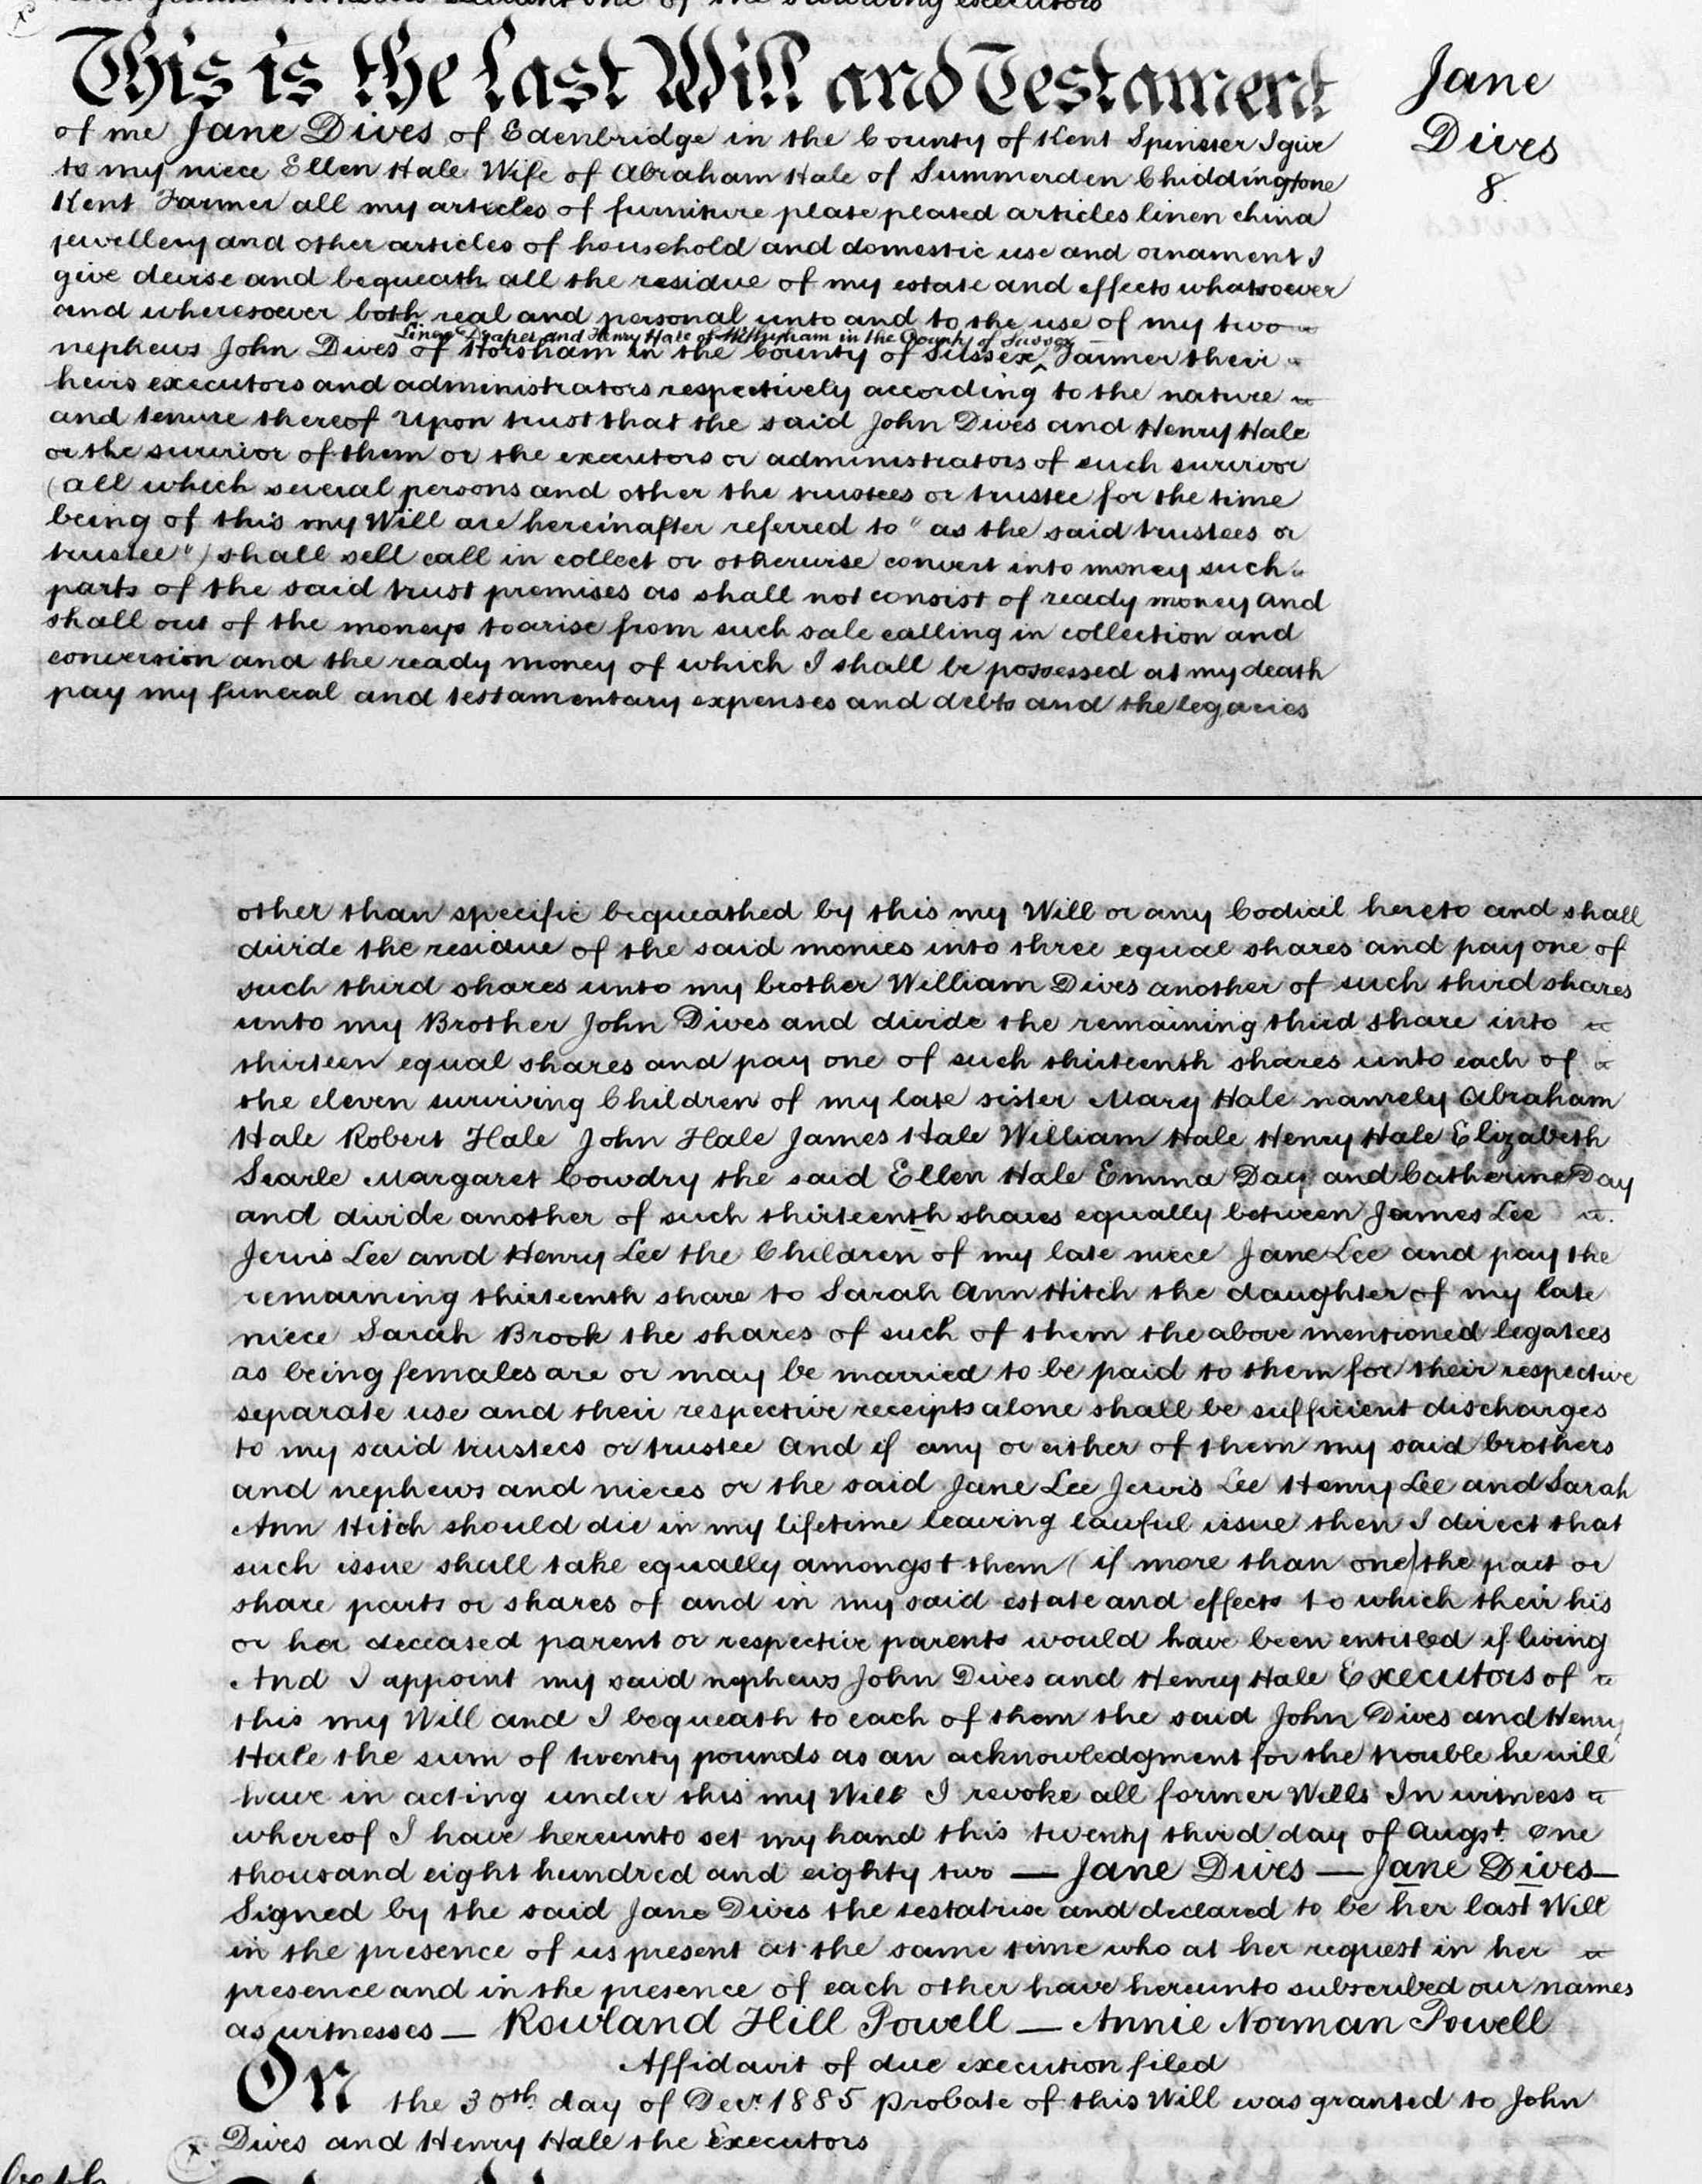 one of the surviving executors
This is the last Will and Testament
Jane
Dives
8.
of me Jane Dives of Edenbridge in the County of Kent Spinster I give
to my niece Ellen Hale Wife of Abraham Hale of Summerden Chiddingstone
Kent Farmer all my articles of furniture plate plated articles linen china
jewellery and other articles of household and domestic use and ornament I
give devise and bequeath all the residue of my estate and effects whatsoever
and wheresoever both real and personal unto and to the use of my two
Linen Draper and Henry Hale of Withyham in the County of Sussex
nephews John Dives of Horsham in the County of Sussex ^ Farmer their
heirs executors and administrators respectively according to the nature
and tenure thereof Upon trust that the said John Dives and Henry Hale
or the survivor of them or the executors or administrators of such survivor
(all which several persons and other the trustees or trustee for the time
being of this my Will are hereinafter referred to "as the said trustees or
trustee") shall sell call in collect or otherwise convert into money such
parts of the said trust premises as shall not consist of ready money and
shall out of the moneys to arise from such sale calling in collection and
conversion and the ready money of which I shall be possessed at my death
pay my funeral and testamentary expenses and debts and the legacies
other than specific bequeathed by this my Will or any Codicil hereto and shall
divide the residue of the said monies into three equal shares and pay one of
such third shares unto my brother William Dives another of such third shares
unto my Brother John Dives and divide the remaining third share into
thirteen equal shares and pay one of such thirteenth shares unto each of
the eleven surviving Children of my late sister Mary Hale namely Abraham
Hale Robert Hale John Hale James Hale William Hale Henry Hale Elizabeth
Searle Margaret Cowdry the said Ellen Hale Emma Day and Catherine Day
and divide another of such thirteenth shares equally between James Lee
Jervis Lee and Henry Lee the Children of my late niece Jane Lee and pay the
remaining thirteenth share to Sarah Ann Hitch the daughter of my late
niece Sarah Brook the shares of such of them the above mentioned legatees
as being females are or may be married to be paid to them for their respective
separate use and their respective receipts alone shall be sufficient discharges
to my said trustees or trustee And if any or either of them my said brothers
and nephews and nieces or the said Jane Lee Jervis Lee Henry Lee and Sarah
Ann Hitch should die in my lifetime leaving lawful issue then I direct that
such issue shall take equally amongst them (if more than one) the part or
share parts or shares of and in my said estate and effects to which their his
or her deceased parent or respective parents would have been entitled if living
And I appoint my said nephews John Dives and Henry Hale Executors of
this my Will and I bequeath to each of them the said John Dives and Henry
Hale the sum of twenty pounds as an acknowledgment for the trouble he will
have in acting under this my Will I revoke all former Wills In witness
whereof I have hereunto set my hand this twenty third day of Augst. One
thousand eight hundred and eighty two — Jane Dives — Jane Dives —
Signed by the said Jane Dives the testatrix and declared to be her last Will
in the presence of us present at the same time who at her request in her
presence and in the presence of each other have hereunto subscribed our names
as witnesses — Rowland Hill Powell — Annie Norman Powell
Affidavit of due execution filed
On the 30th. day of Decr. 1885 Probate of this Will was granted to John
Dives and Henry Hale the Executors